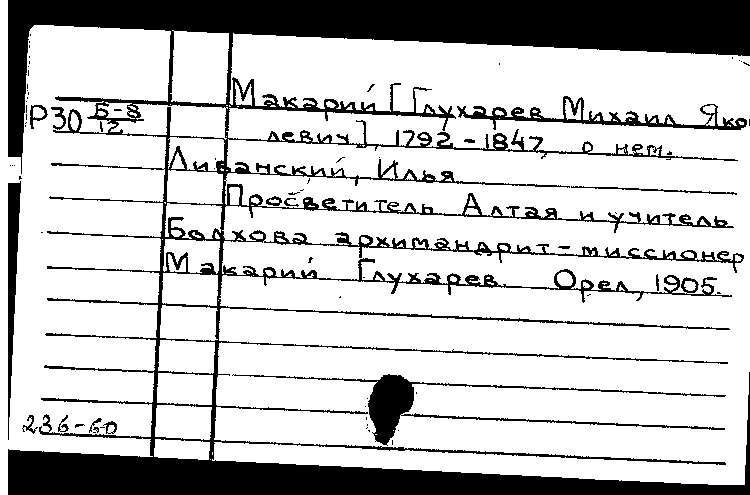 Макарий [Глухарев Михаил Яко
Р30 Б-8/12
левич], 1792-1847, о нем.
Ливанский, Илья
Просветитель Алтая и учитель
Болхова архимандрит-миссионер
Макарий Глухарев. Орел, 1905.
236-60